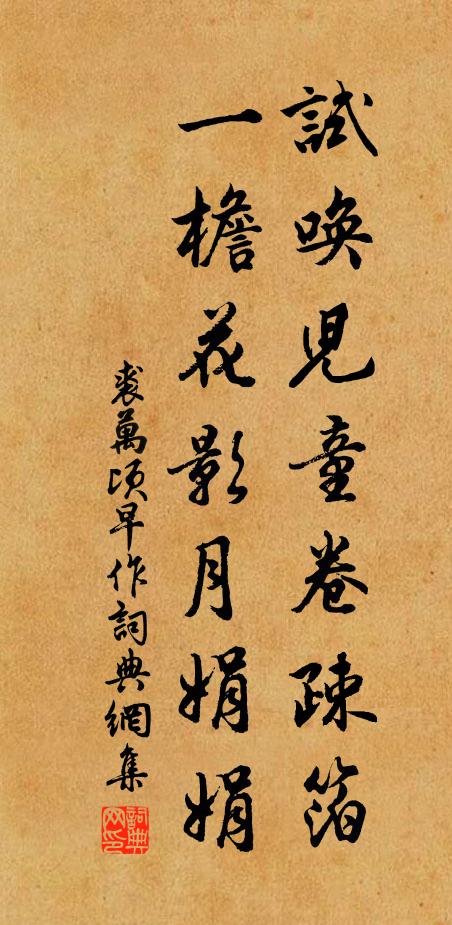 試喚兒童卷疎箔
一檐花影月娟娟
裘萬頃早作詞典網集
詞典网印